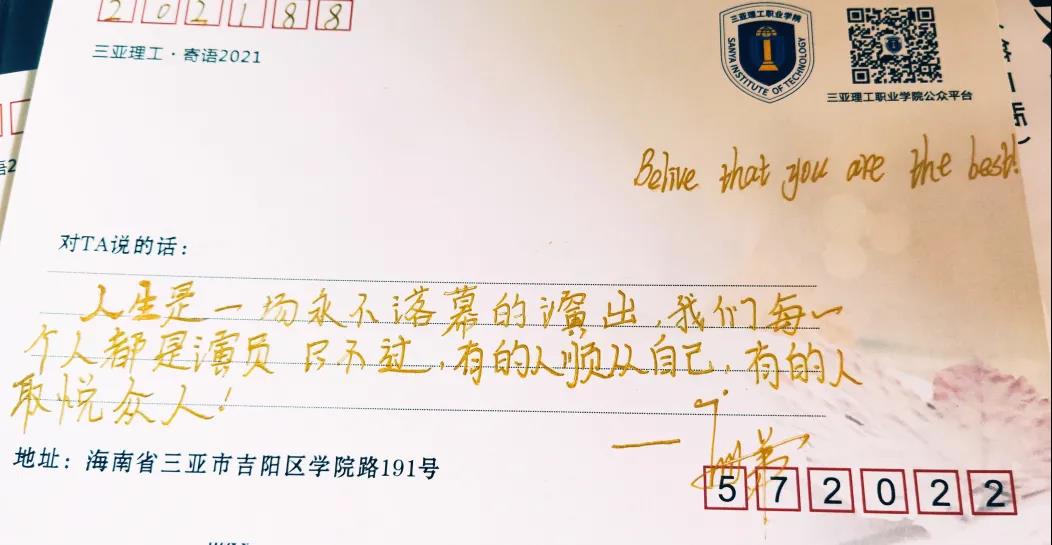 202188
三亚理工·寄语2021
三亚理工职业学院
SANYA INSTITUTE OF TECHNOLOGY
三亚理工职业学院公众平台
Belive that you are the best!
对TA说的话：
人生是一场永不落幕的演出，我们每一
个人都是演员 只不过，有的人顺从自己，有的人
取悦众人！
地址：海南省三亚市吉阳区学院路191号
572022